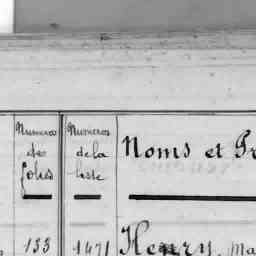 Numeros des folies
Numeros de la liste
Noms et Pr
133 1471 Henry, Ma